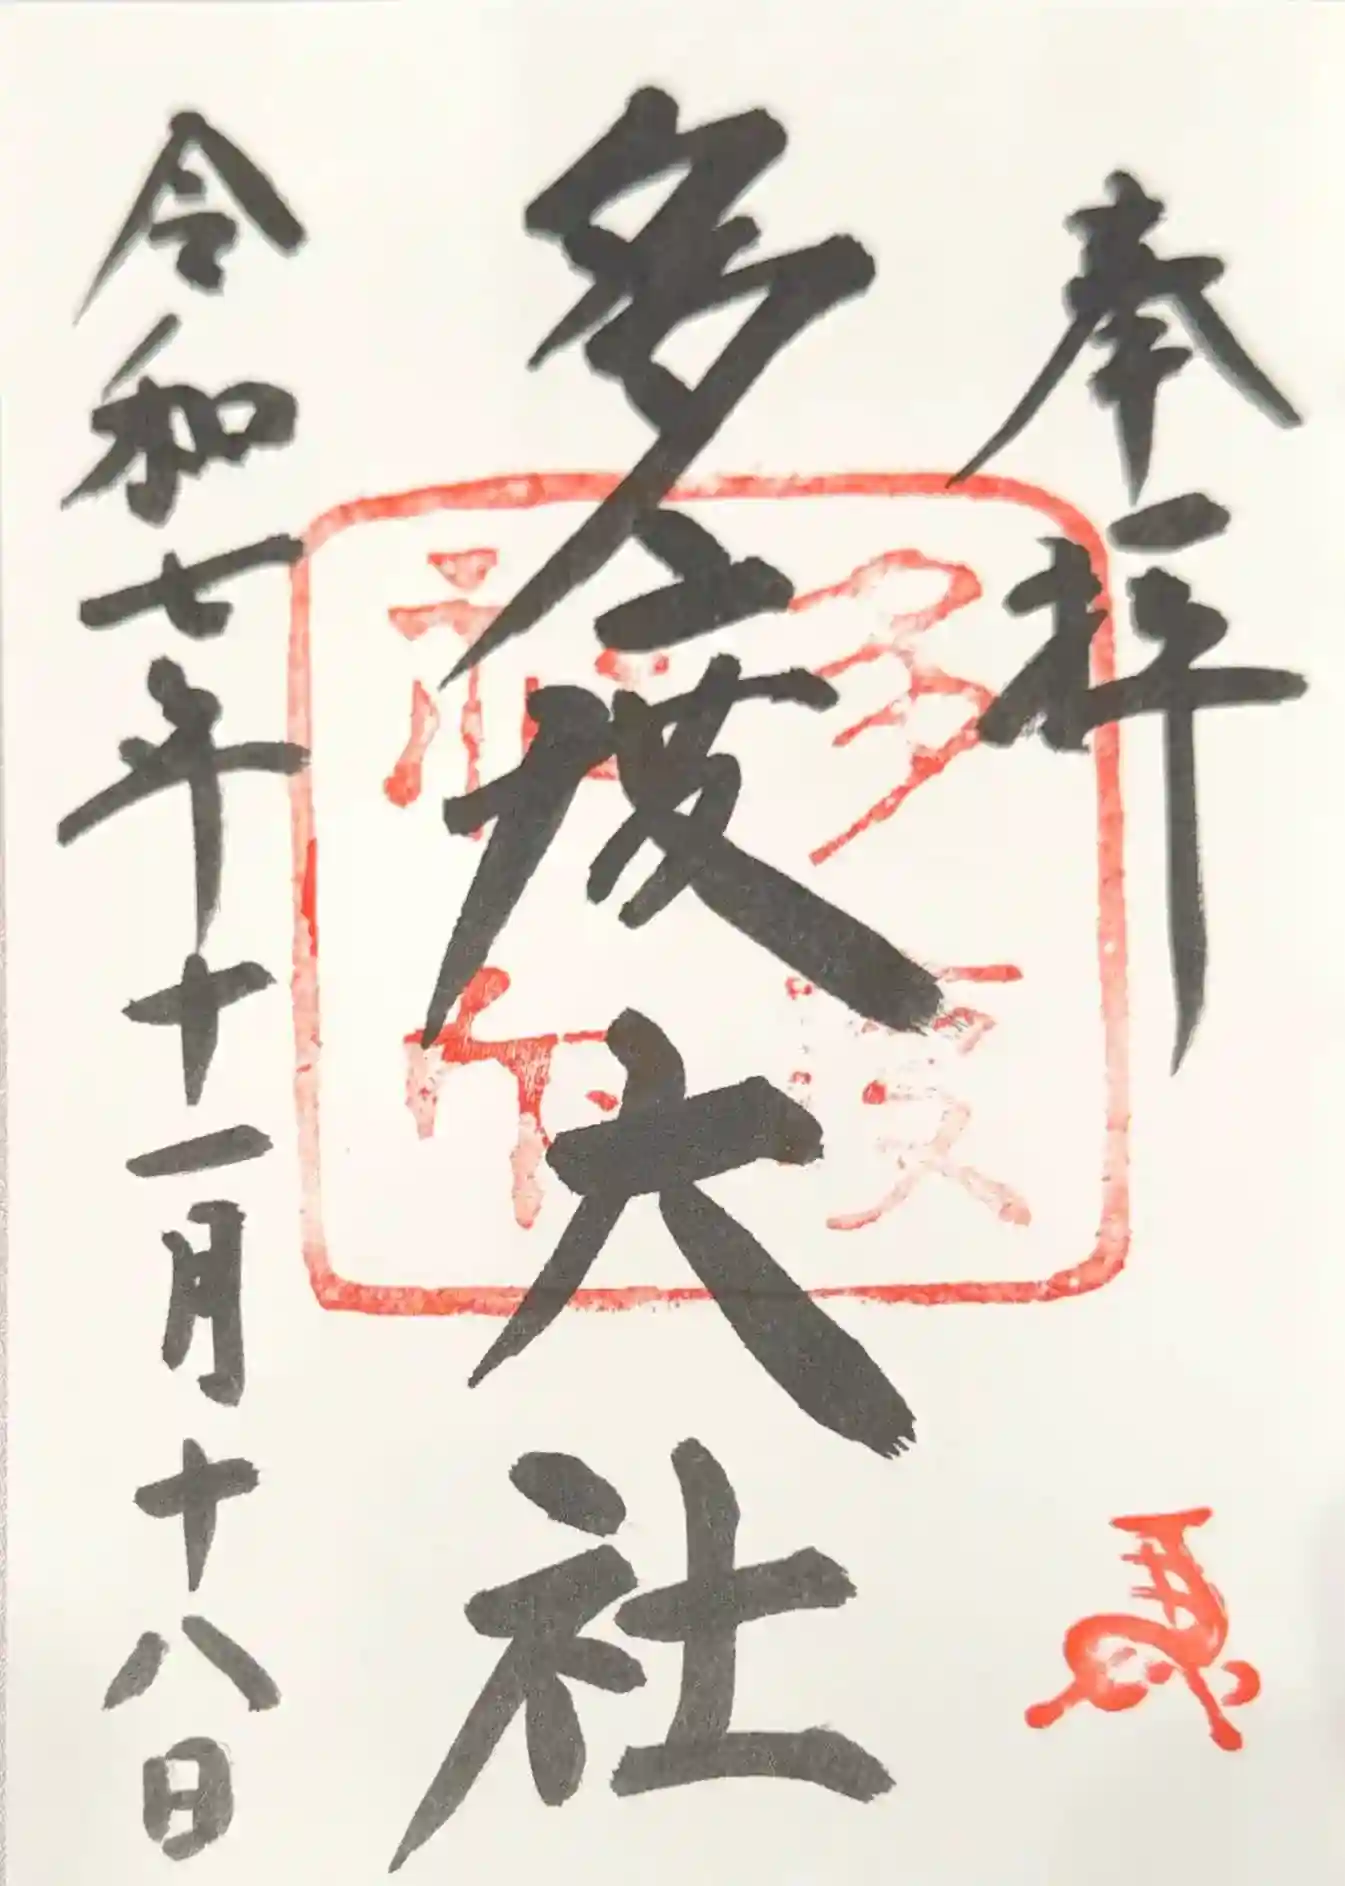 奉拝
多度大社
令和七年十一月十八日
多度
神社